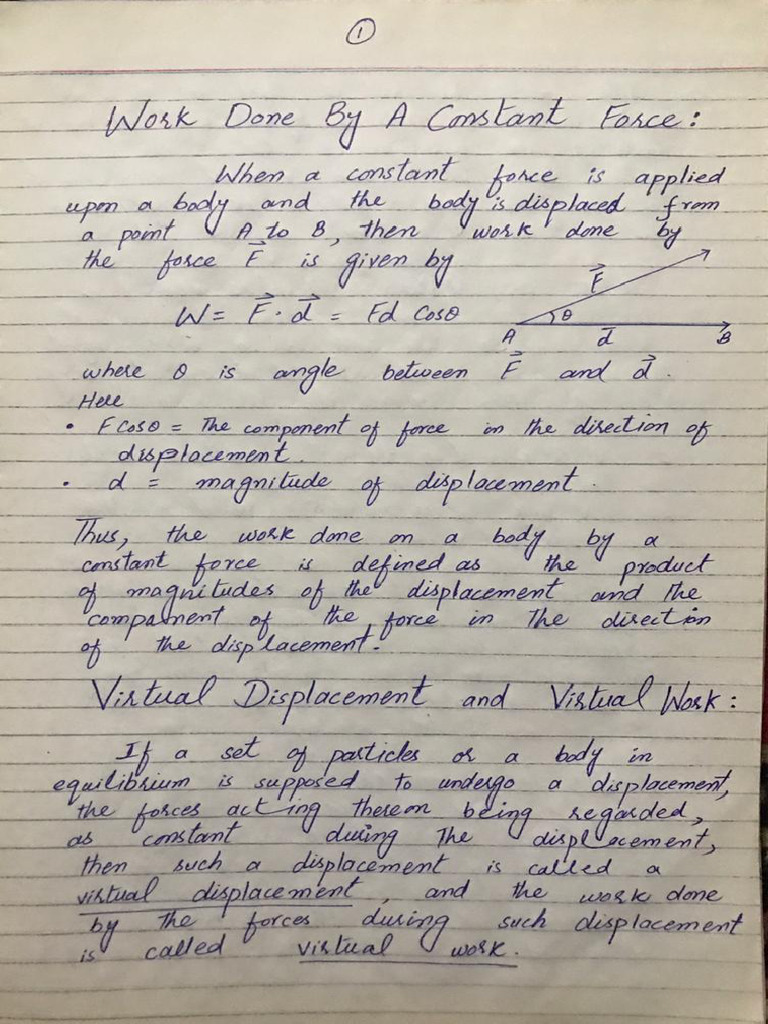 1
Work Done By A Constant Force:
When a constant force is applied
upon a body and the body is displaced from
a point A to B, then work done by
the force F⃗ is given by
W = F⃗ · d⃗ = Fd Cosθ
F⃗
θ
A d⃗ B
where θ is angle between F⃗ and d⃗.
Here
• F Cosθ = The component of force in the direction of
displacement.
• d = magnitude of displacement.
Thus, the work done on a body by a
constant force is defined as the product
of magnitudes of the displacement and the
component of the force in the direction
of the displacement.
Virtual Displacement and Virtual Work:
If a set of particles or a body in
equilibrium is supposed to undergo a displacement,
the forces acting thereon being regarded,
as constant during the displacement,
then such a displacement is called a
virtual displacement, and the work done
by the forces during such displacement
is called virtual work.